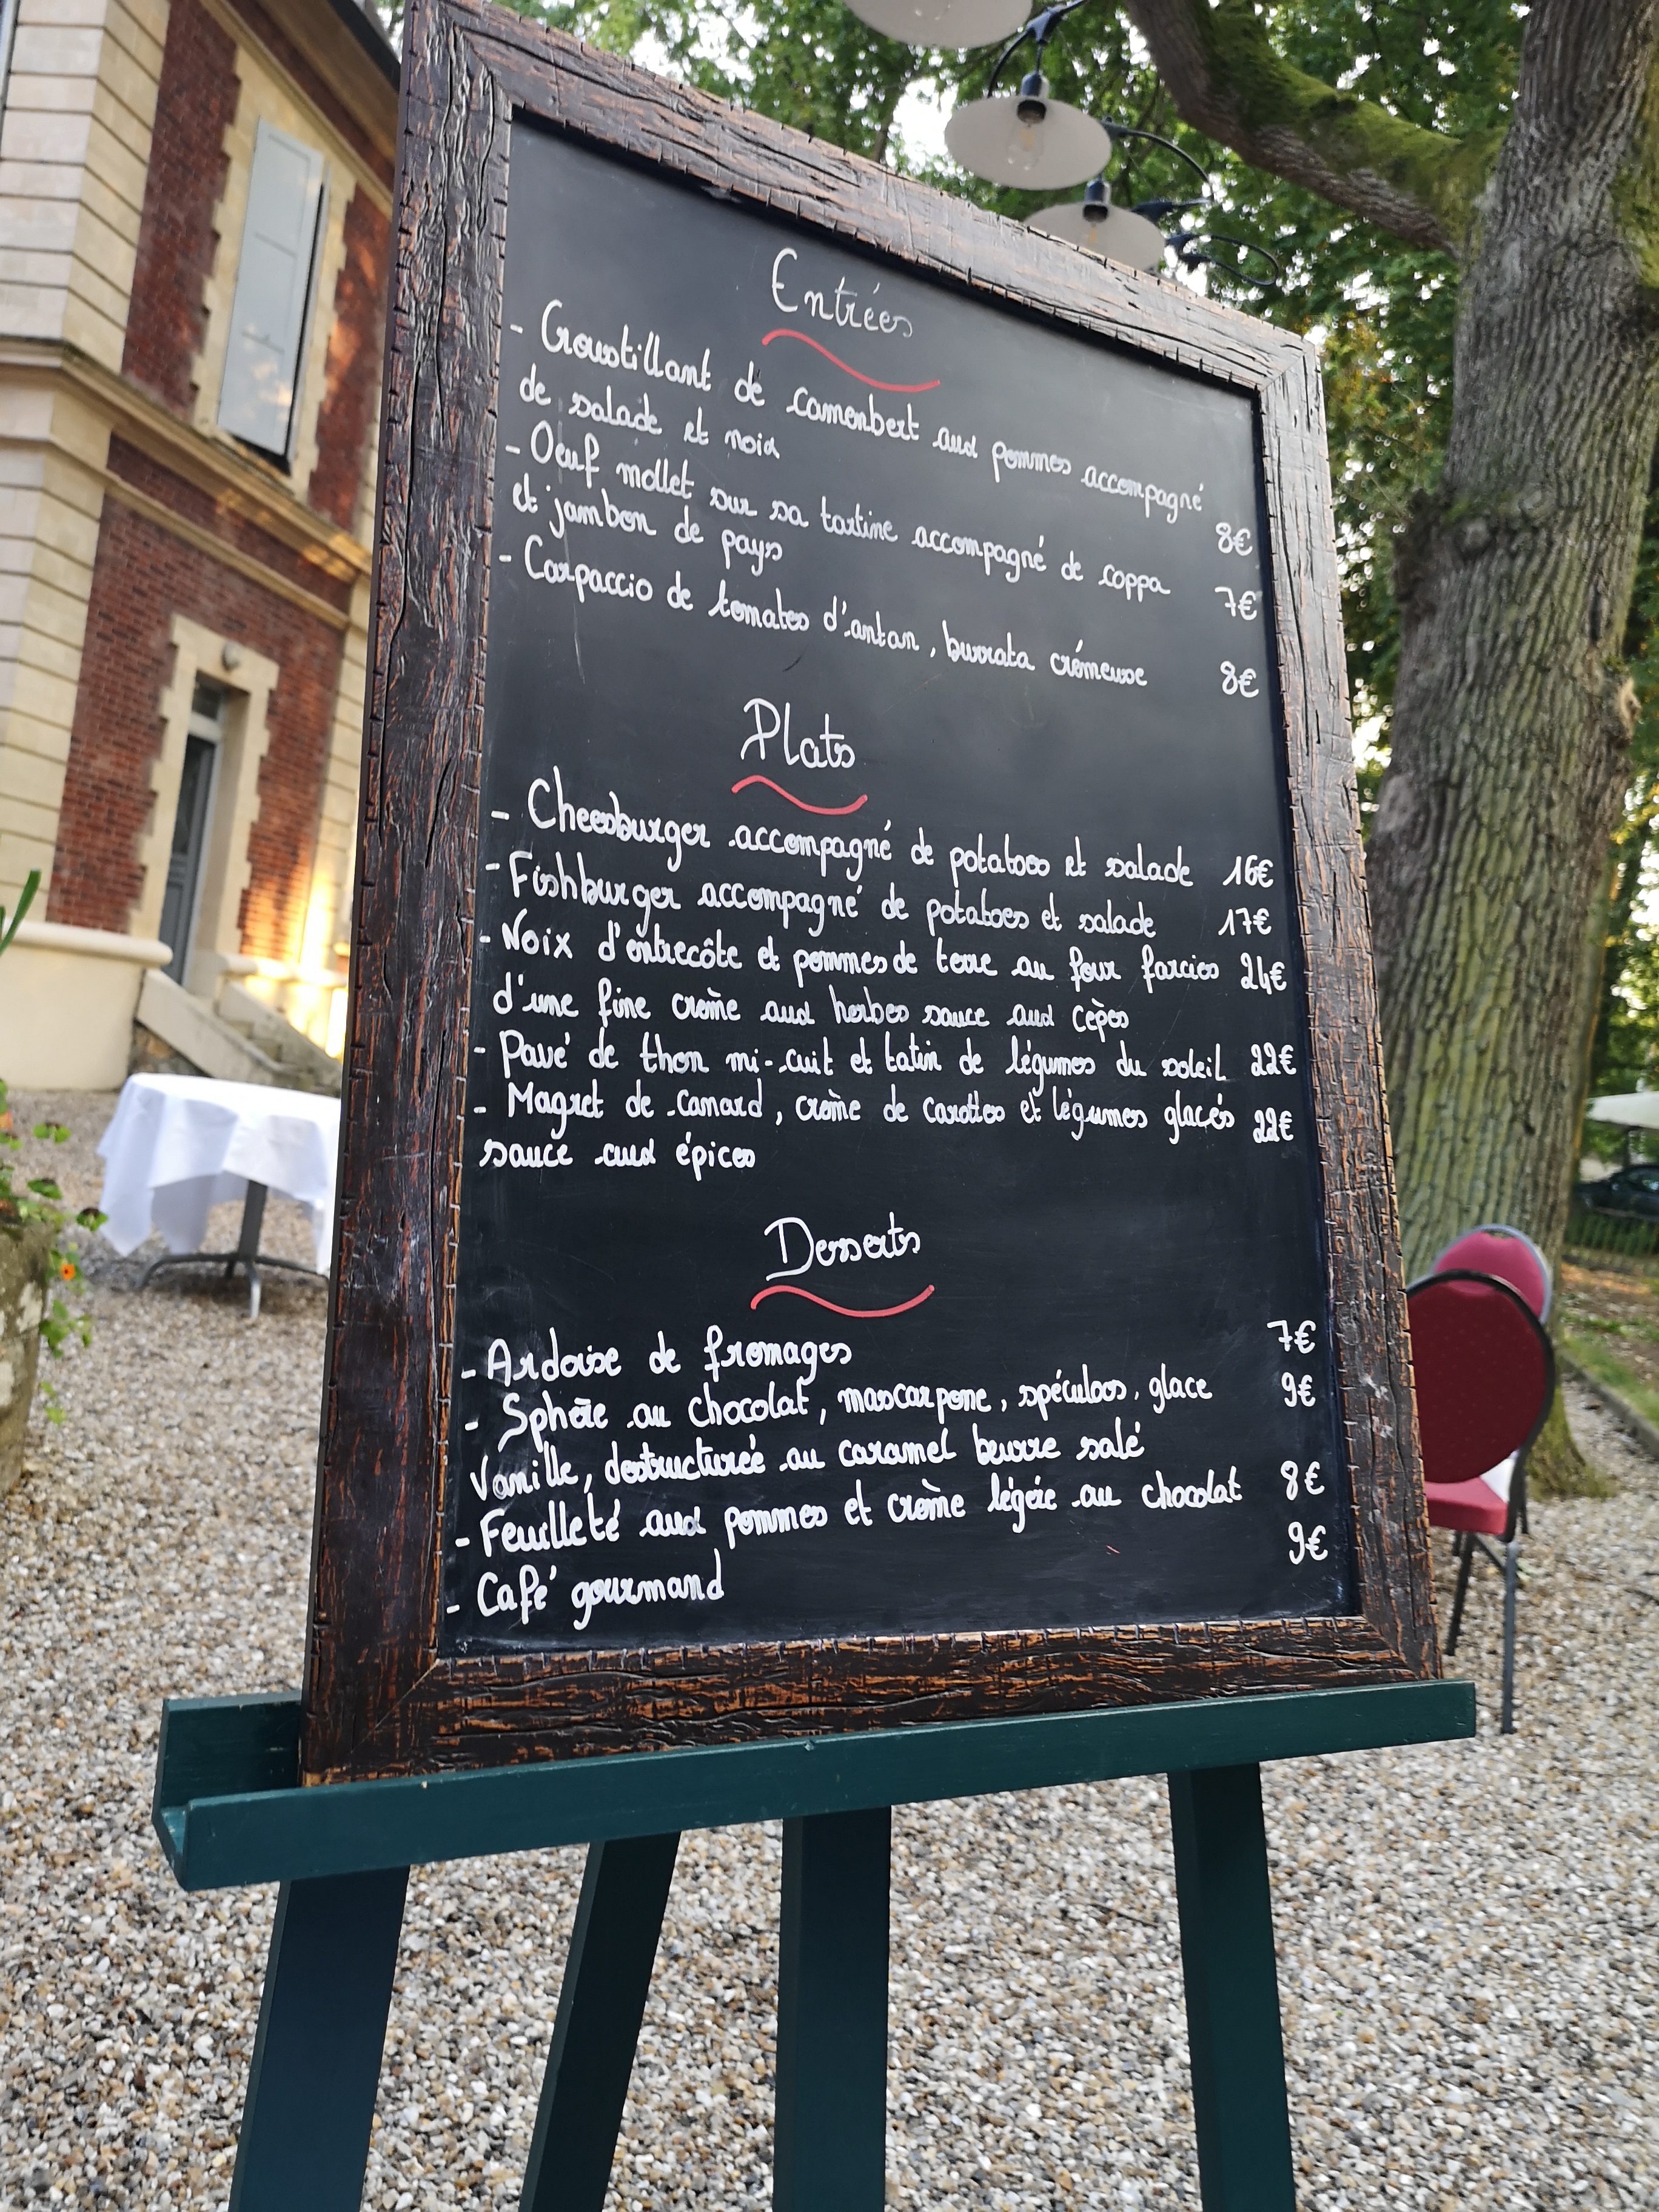 Entrées
- Croustillant de camenbert aux pommes accompagné
de salade et noix 8€
- Oeuf mollet sur sa tartine accompagné de coppa
et jambon de pays 7€
- Carpaccio de tomates d'antan, burrata crémeuse 8€
Plats
- Cheesburger accompagné de potatoes et salade 16€
- Fishburger accompagné de potatoes et salade 17€
- Noix d'entrecôte et pommes de terre au four farcies 24€
d'une fine crème aux herbes sauce aux cèpes
- Pavé de thon mi-cuit et tatin de légumes du soleil 22€
- Magret de canard, crème de carottes et légumes glacés 22€
sauce aux épices
Desserts
- Ardoise de fromages 7€
- Sphère au chocolat, mascarpone, spéculoos, glace 9€
Vanille, destructurée au caramel beurre salé
- Feuilleté aux pommes et crème légère au chocolat 8€
- Café gourmand 9€